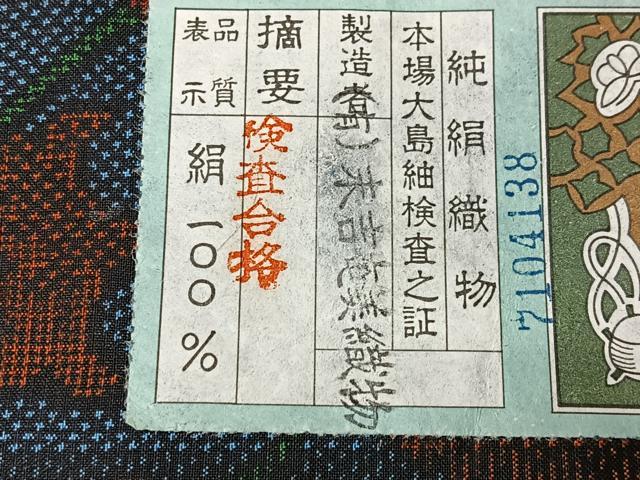 純絹織物
本場大島紬検査之証
製造者
(有)末吉記美織物
摘要
検査合格
品質
表示
絹一〇〇%
7104138